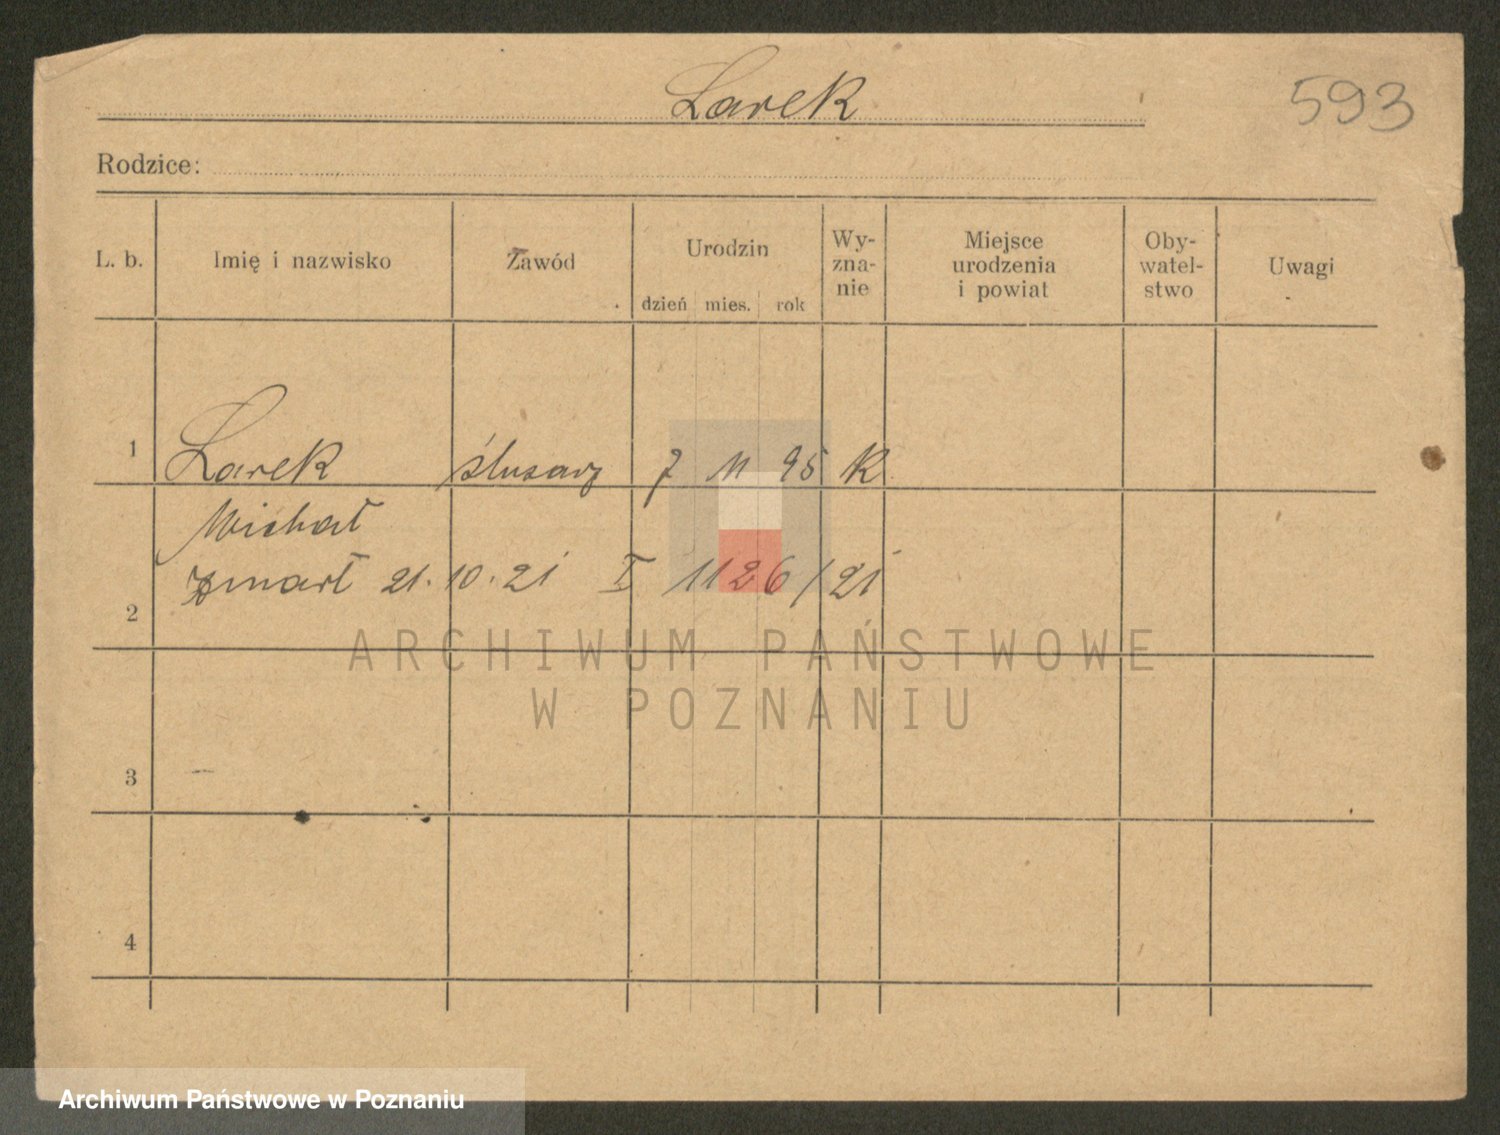 Larek
593
Rodzice:
L. b. Imię i nazwisko Zawód Urodzin dzień mies. rok Wy-zna-nie Miejsce urodzenia i powiat Oby-watel-stwo Uwagi
1 Larek ślusarz 7 11 95 K
Michał
zmarł 21.10.21 I 1126/21
2
ARCHIWUM PAŃSTWOWE
W POZNANIU
3
4
Archiwum Państwowe w Poznaniu